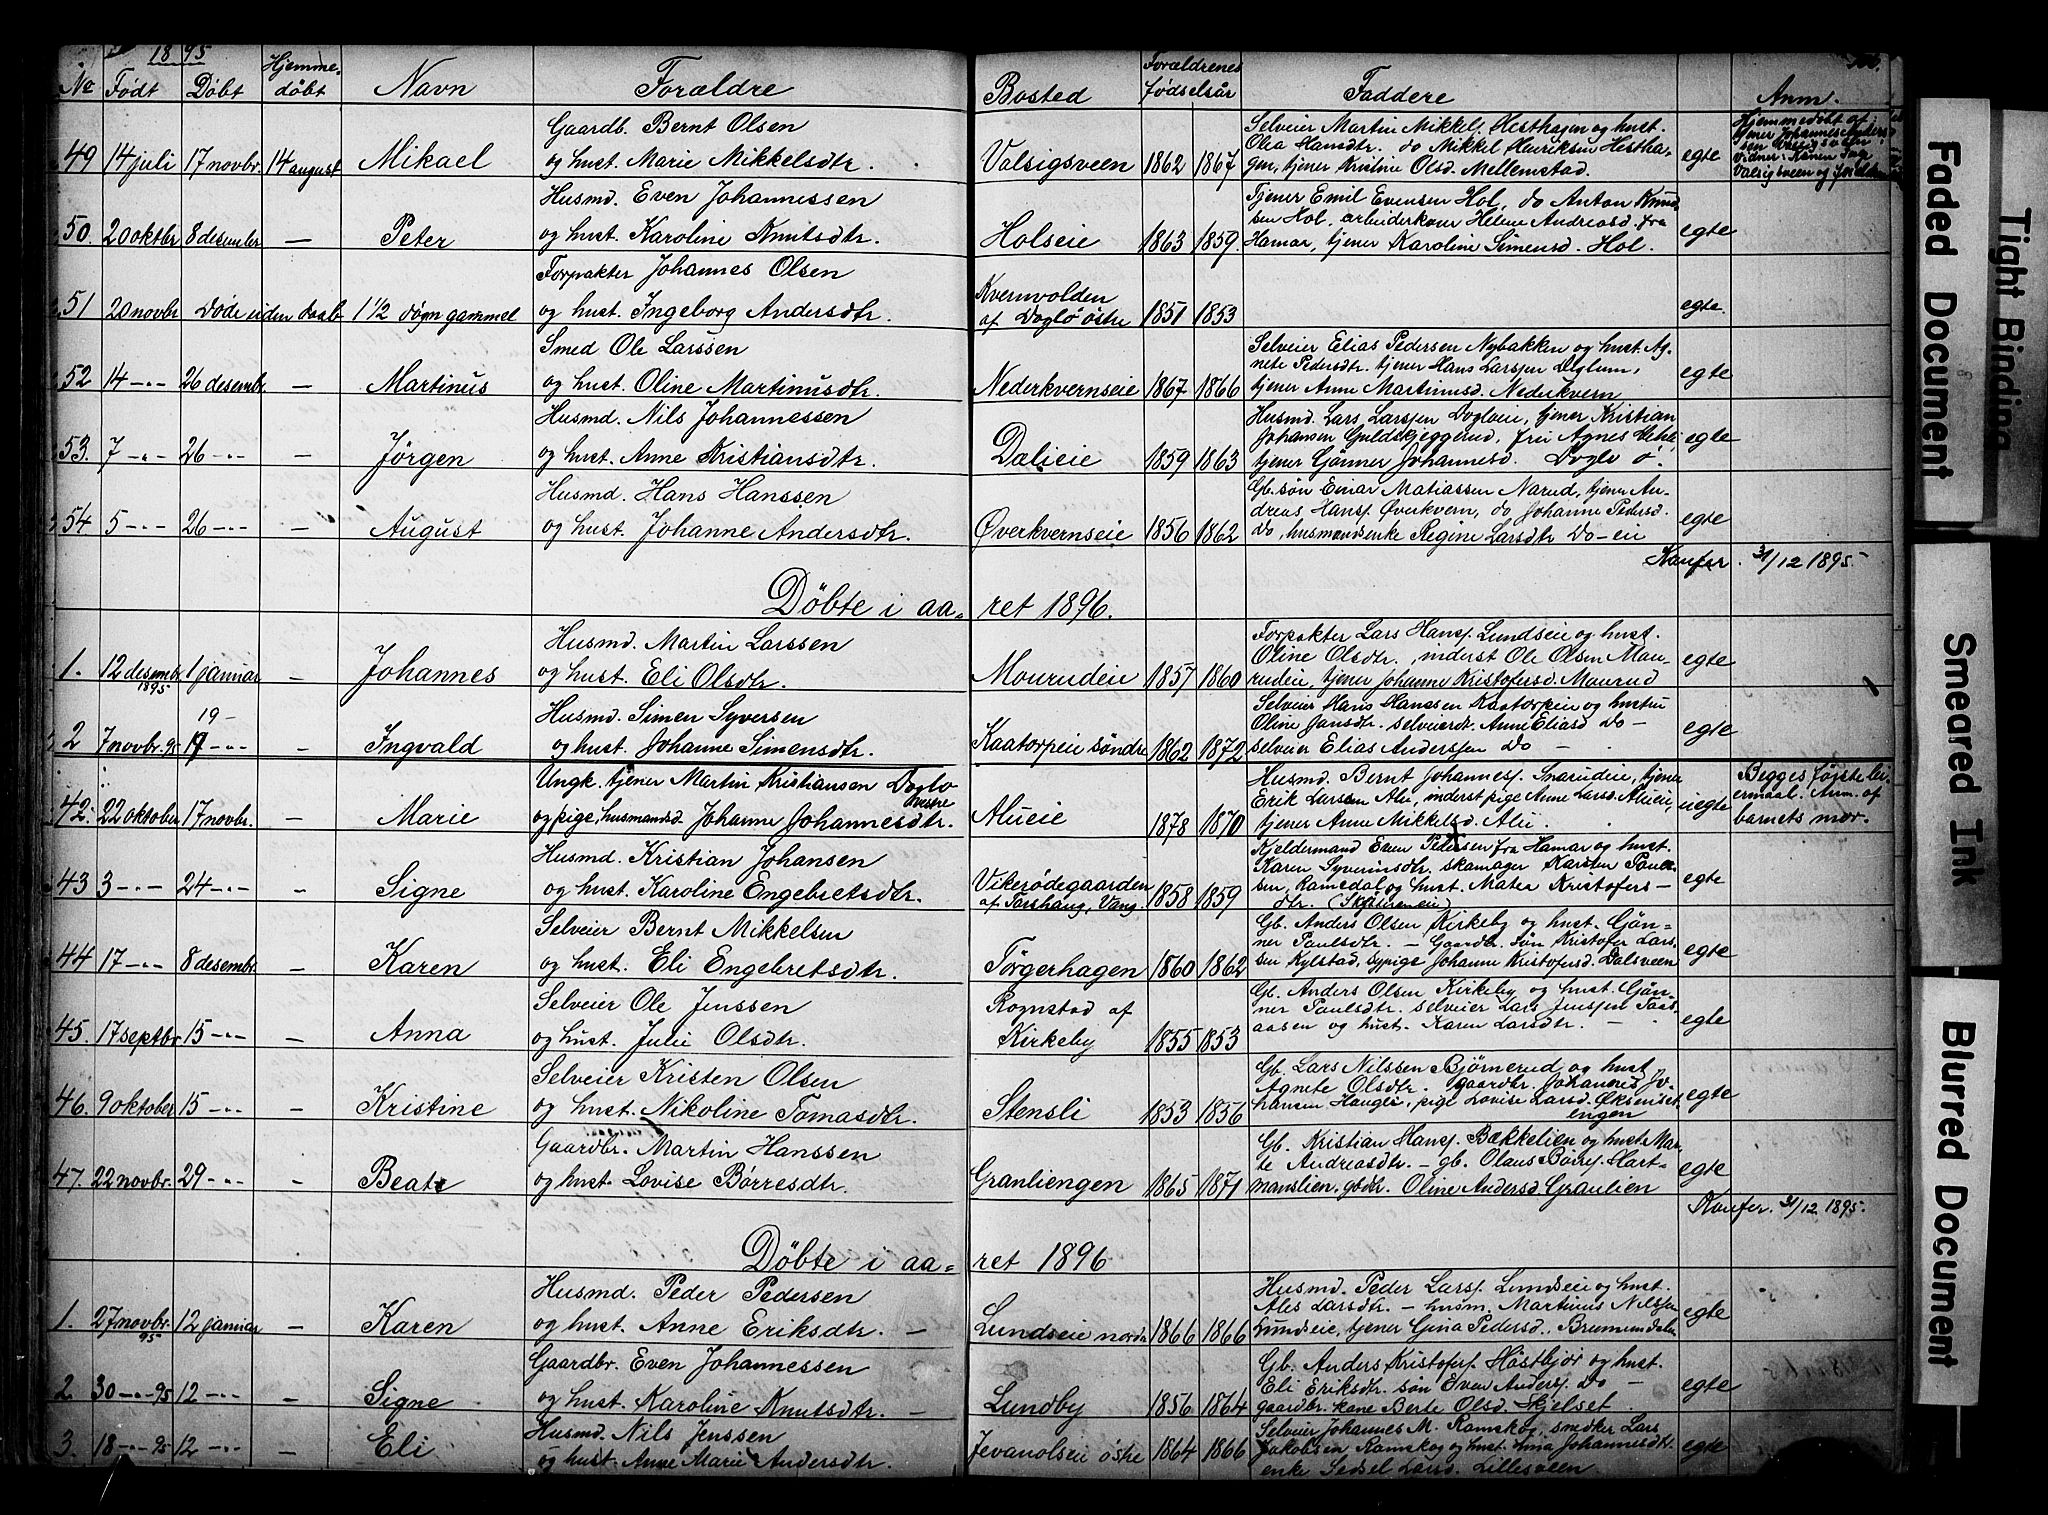 1895
No Født Døbt Hjemme-døbt Navn Forældre Bosted Forældrenes fødselsår Faddere Anm.
Gaardb. Bernt Olsen
49 14 juli 17 novbr. 14 august Mikael og hust. Marie Mikkelsdtr. Valsigsveen 1862 1867 egte
Selveier Martin Mikkels. Hesthagen og hust.
Olea Hansdtr. do Mikkel Henriksen Hestha-
gen, tjener Kristine Olsd. Mellemstad.
Hjemmedøbt af
Husmd. Even Johannessen
50. 20 oktbr 8 desember – Peter og hust. Karoline Knutsdtr. Holseie 1863 1859 egte
Tjener Emil Evensen Hol, do Anton Knud-
sen Hol, arbeiderkone Helene Andreasd. fra
Hamar, tjener Karoline Simensd. Hol.
Forpakter Johannes Olsen
51 20 novbr Døde uden daab 1 1/2 døgn gammel og hust. Ingeborg Andersdtr. Kvernvolden
af Doglø østre 1851 1853 egte.
Smed Ole Larssen
52 14 -"- 26 desembr. – Martinus og hust. Oline Martinusdtr. Nederkvernseie 1867 1866 egte
Selveier Elias Pedersen Nybakken og hust. Ag-
nete Pedersdtr. tjener Hans Larssen Deglum,
tjener Anne Martinusd. Nederkvern
Husmd. Nils Johannessen
53. 7 -"- 26 -"- – Jørgen og hust. Anne Kristiansdtr. Dalieie 1859 1863 egte
Husmd. Lars Larssen Dogloeie, tjener Kristian
Johansen Guldskjeggerud, fru Agnes
tjener Gønner Johannesd. Doglo ø.
Husmd. Hans Hanssen
54. 5 -"- 26 -"- – August og hust. Johanne Andersdtr. Øverkvernseie 1856 1862 egte
Gb. søn Einar Matiassen Narud, tjener An-
dreas Hans. Øverkvern, do Johanne Pedersd.
Do, husmandsenke Regine Larsdtr Do-eie
Konfer. 31/12 1895.
Døbte i aa- ret 1896.
Husmd. Martin Larssen
1. 12 desembr. 1895 1 januar – Johannes og hust. Eli Olsdtr. Mourudeie 1857 1860 egte
Forpakter Lars Hans. Lundseie og hust.
Oline Olsdtr., inderst Ole Olsen Mau-
rudeie, tjener Johanne Kristofersd. Maurud
Husmd. Simen Syversen
2 7 novbr. 95 19 -"- – Ingvald og hust. Johanne Simensdtr. Kaatorpeie søndre 1862 1872 egte
Selveier Hans Hanssen Kaatorpeie og hustru
Oline Jansdtr. selveierdt. Anne Eliasd Do –
selveier Elias Anderssen Do –
Ungk. tjener Martin Kristiansen Doglo
vestre
42. 22 oktober 17 novbr. – Marie og pige, husmandsd. Johanne Johannesdtr. Alueie 1878 1870 uegte
Husmd. Bernt Johannes. Snarudeie, tjener
Erik Larssen Alu, inderst pige Anne Larsd. Alueie,
tjener Anne Mikkelsd. Alu.
Begges første lei-
ermaal. Anm. af
barnets mor.
Husmd. Kristian Johansen
43 3 -"- 24 -"- – Signe og hust. Karoline Engebretsdtr. Vikerødegaarden
af Torshaug, Vang. 1858 1859 egte
Kjeldermand Even Pedersen fra Hamar og hust.
Karen Syverinsdtr, skomager Karsten Paul-
sen, Ramsdal og hust. Matea Kristofers-
dtr.
Selveier Bernt Mikkelsen
44 17 -"- 8 desembr. – Karen og hust. Eli Engebretsdtr. Torgerhagen 1860 1862 egte
Gb. Anders Olsen Kirkeby og hust. Gøn-
ner Paulsdtr. – Gaardbr. søn Kristofer Lars-
sen Kylstad, sypige Johanne Kristofersd. Dalsveen
Selveier Ole Jenssen
45. 17 septbr. 15 -"- – Anna og hust. Julie Olsdtr. Rognstad af
Kirkeby 1855 1853 egte
Gb. Anders Olsen Kirkeby og hust. Gøn-
ner Paulsdtr. selveier Lars Jenssen Taas-
aasen og hust. Karen Larsdtr. –
Selveier Kristen Olsen
46. 9 oktober 15 -"- – Kristine og hust. Nikoline Tomasdtr. Stensli 1853 1856 egte
Gb. Lars Nilssen Bjørnerud og hust
Agnete Olsdtr. gaardbr. Johannes Jo-
hansen Haugli, pige Lovise Larsd. Øksenset-
engen
Gaardbr. Martin Hanssen
47. 22 novbr. 29 -"- – Beate og hust. Lovise Børresdtr. Granliengen 1865 1871 egte
Gb. Kristian Hans. Bækkelien og hust. Mar-
te Andreasdtr. – gb. Olaus Børres. Hart-
manslien. gbdtr. Oline Andersd. Granlien
Konfer. 31/12 1895.
Døbte i aa- ret 1896
Husmd. Peder Pedersen
1. 27 novbr. 95 12 januar – Karen og hust. Anne Eriksdtr. – Lundseie nordre 1866 1866 egte
Husmd. Peder Larss. Lundseie og hust.
Ales Larsdtr. – husm. Martinus Nilssen
Lundseie, tjener Gina Pedersd. Brumunddalen
Gaardbr. Even Johannessen
2. 30 -"- 95 12 -"- – Signe og hust. Karoline Knutsdtr. – Lundby 1856 1864 egte
Gb. Anders Kristofers. Høstbjør og hust.
Eli Eriksdtr. søn Even Anders. Do –
gaardbr. kone Berte Olsd. Skjelset.
Husmd. Nils Jenssen
3. 18 -"- 95 12 -"- – Eli og hust. Anne Marie Andersdtr. Jevanolseie østre 1864 1866 egte
Selveier Johannes M. Ramskog, snedker Lars
Jakobsen Ramskog og hust. Johannesdtr.
enke Sedsel Larsd. Lillesveen.
Faded Document
Tight Binding
Smeared Ink
Blurred Document